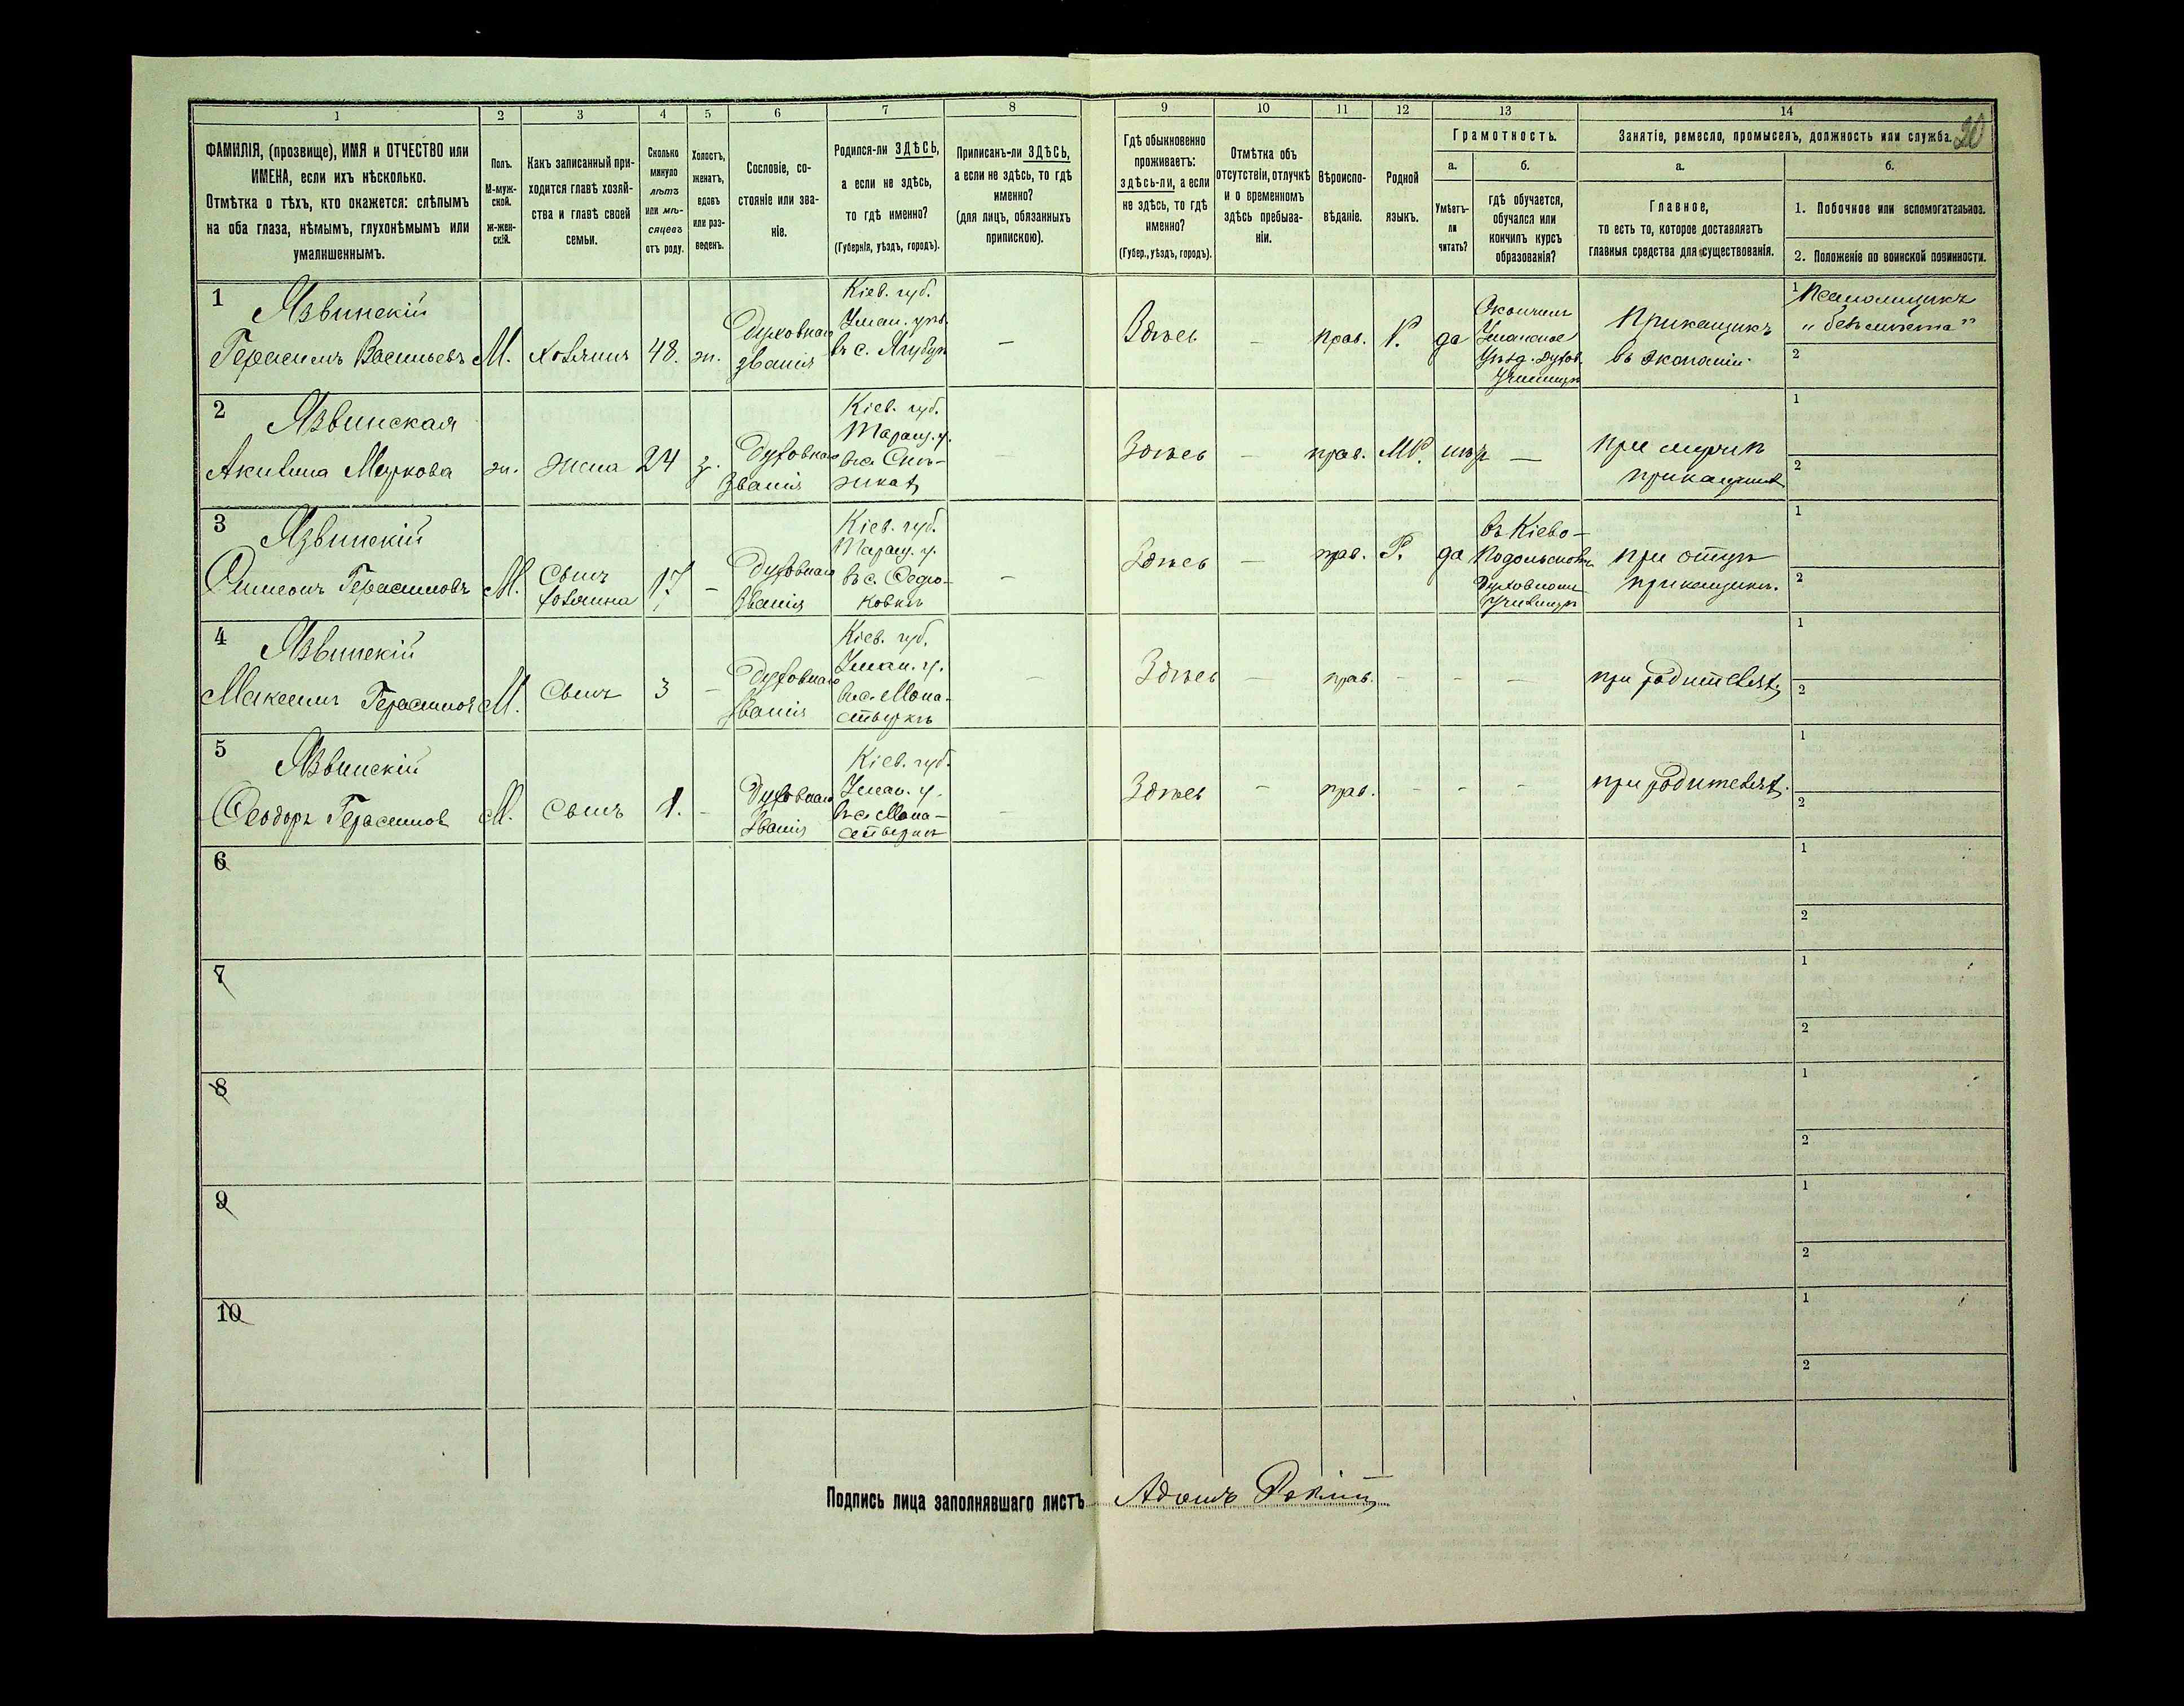 1 2 3 4 5 6 7 8 9 10 11 12 13 14
20
ФАМИЛІЯ, (прозвище), ИМЯ и ОТЧЕСТВО или
ИМЕНА, если ихъ нѣсколько.
Отмѣтка о тѣхъ, кто окажется: слѣпымъ
на оба глаза, нѣмымъ, глухонѣмымъ или
умалишеннымъ.
Полъ.
М-муж-
ской.
ж-жен-
скій.
Какъ записанный при-
ходится главѣ хозяй-
ства и главѣ своей
семьи.
Сколько
минуло
лѣтъ
или мѣ-
сяцевъ
отъ роду.
Холостъ,
женатъ,
вдовъ
или раз-
веденъ.
Сословіе, со-
стояніе или зва-
ніе.
Родился-ли ЗДѢСЬ,
а если не здѣсь,
то гдѣ именно?
(Губернія, уѣздъ, городъ).
Приписанъ-ли ЗДѢСЬ,
а если не здѣсь, то гдѣ
именно?
(для лицъ, обязанныхъ
припискою).
Гдѣ обыкновенно
проживаетъ:
здѣсь-ли, а если
не здѣсь, то гдѣ
именно?
(Губер., уѣздъ, городъ).
Отмѣтка объ
отсутствіи, отлучкѣ
и о временномъ
здѣсь пребыва-
ніи.
Вѣроиспо-
вѣданіе.
Родной
языкъ.
Грамотность.
а.
Умѣетъ-
ли
читать?
б.
гдѣ обучается,
обучался или
кончилъ курсъ
образованія?
Занятіе, ремесло, промыселъ, должность или служба.
а.
Главное,
то есть то, которое доставляетъ
главныя средства для существованія.
б.
1. Побочное или вспомогательное.
2. Положеніе по воинской повинности.
1
Язвинскій
Герасимъ Васильевъ
М.
хозяинъ
48.
ж.
Духовнаго
званія
Кіев. губ.
Уман. уѣз.
въ с.
—
Здѣсь
—
прав.
Р.
да
Окончилъ
Уманское
Уѣзд. Духов.
Училище
Прикащикъ
въ экономіи.
1 Псаломщикъ
2
2
Язвинская
Акилина Маркова
ж.
жена
24
з.
Духовнаго
званія
Кіев. губ.
Таращ. у.
—
Здѣсь
—
прав.
МР.
нѣт
—
при мужѣ
прикащикѣ
1
2
3
Язвинскій
Симеонъ Герасимовъ
М.
Сынъ
хозяина
17
—
Духовнаго
званія
Кіев. губ.
Таращ. у.
въ с. Федю-
ковкѣ
—
Здѣсь
—
прав.
Р.
да
въ Кіево-
Подольскомъ
Духовномъ
Училищѣ
при отцѣ
прикащикѣ.
1
2
4
Язвинскій
Максимъ Герасимов
М.
Сынъ
3
—
Духовнаго
званія
Кіев. губ.
Уман. у.
въ с. Мона-
стыркѣ
—
Здѣсь
—
прав.
—
—
—
при родителях
1
2
5
Язвинскій
Феодоръ Герасимов
М.
Сынъ
1.
—
Духовнаго
званія
Кіев. губ.
Уман. у.
въ с. Мона-
стыркѣ
—
Здѣсь
—
прав.
—
—
—
при родителях.
1
2
6
1
2
7
1
2
8
1
2
9
1
2
10
1
2
Подпись лица заполнявшаго листъ